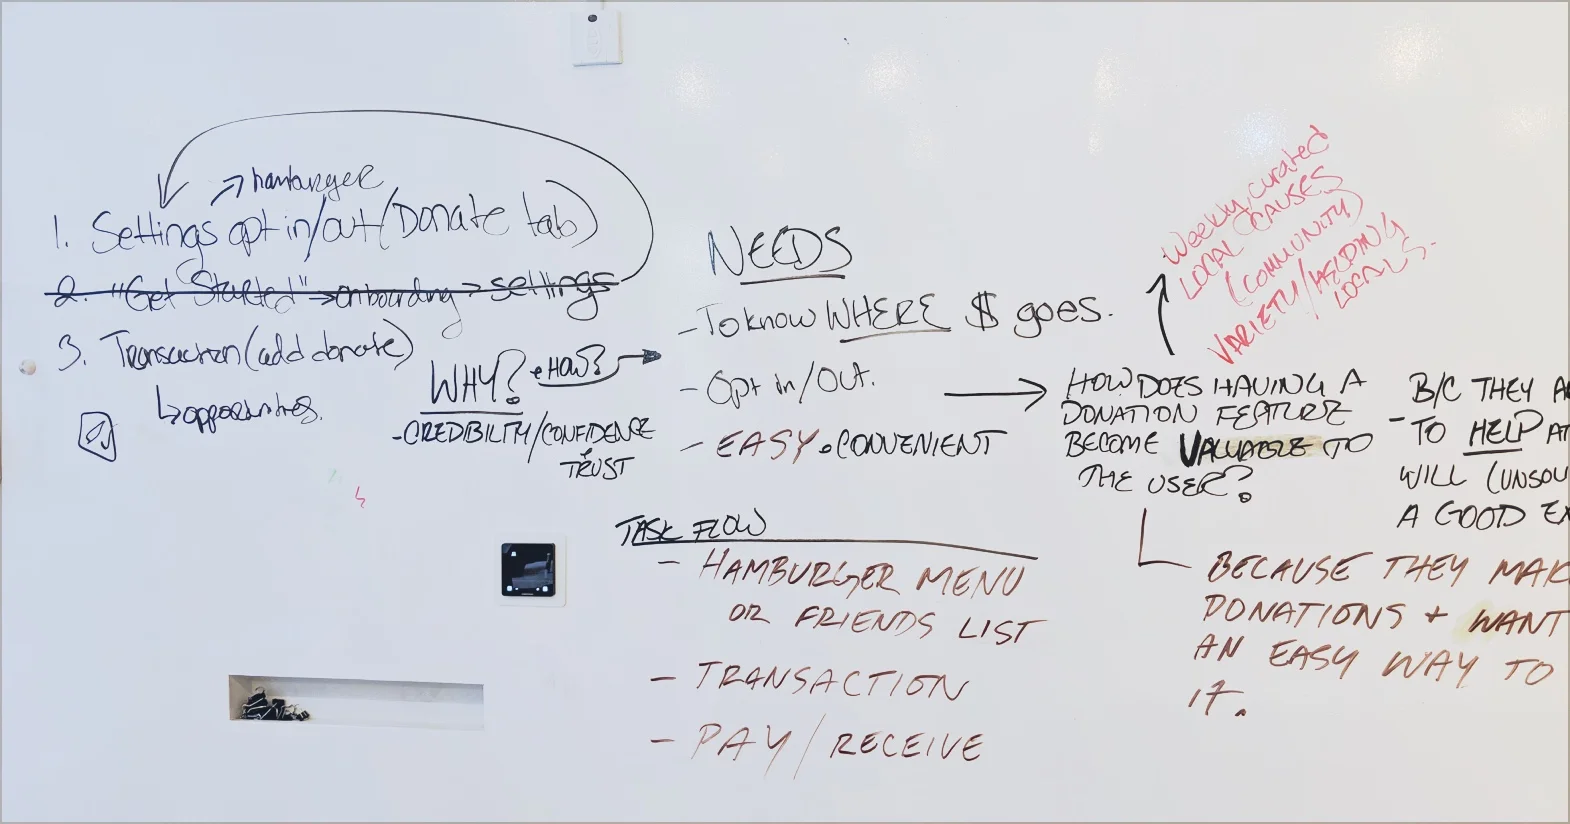 hamburger
1. Settings opt in/out (Donate tab)
2. "Get Started" → onboarding → settings
3. Transaction (add donate)
↳ opportunities.
WHY? • HOW?
- CREDIBILITY/CONFIDENCE
TRUST
NEEDS
- To know WHERE $ goes.
- Opt in/Out.
- EASY • CONVENIENT
TASK FLOW
- HAMBURGER MENU
OR FRIENDS LIST
- TRANSACTION
- PAY/RECEIVE
Weekly, curated
LOCAL CAUSES
(COMMUNITY)
VARIETY/HELPING
LOCALS.
HOW DOES HAVING A
DONATION FEATURE
BECOME VALUABLE TO
THE USER?
B/C THEY A
- TO HELP AT
WILL (UNSOL
A GOOD EX
BECAUSE THEY MAK
DONATIONS + WANT
AN EASY WAY TO
IT.